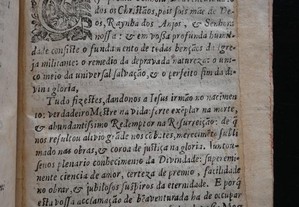 os Christãos, pois sois mãe de De-
os, Raynha dos Anjos, & Senhora
nossa: & em vossa profunda humil-
dade consiste o fundamento de todas benções da Igre-
ja militante: o remedio da depravada natureza: o uni-
co meio da universal salvação, & o perfeito sim da di-
vina gloria,
Tudo fizestes, dandonos a Jesus irmão no nacimen-
to; verdadeiro Mestre na vida: serte exemplo na morte,
& abundantissimo Redemptor na Resurreição: de q
nos resultou alivio grande nos corpos, merecimento subli-
mado nas obras, & coroa de justiça na gloria. Junton-
senos plenario conhecimento da Divindade: superemi-
nente ciencia de amor, certeza de premio, facilidade
no obrar, & jubilosos suspiros da eternidade. E porq
esta vossa acclamação de beaventurada ha de ocupar